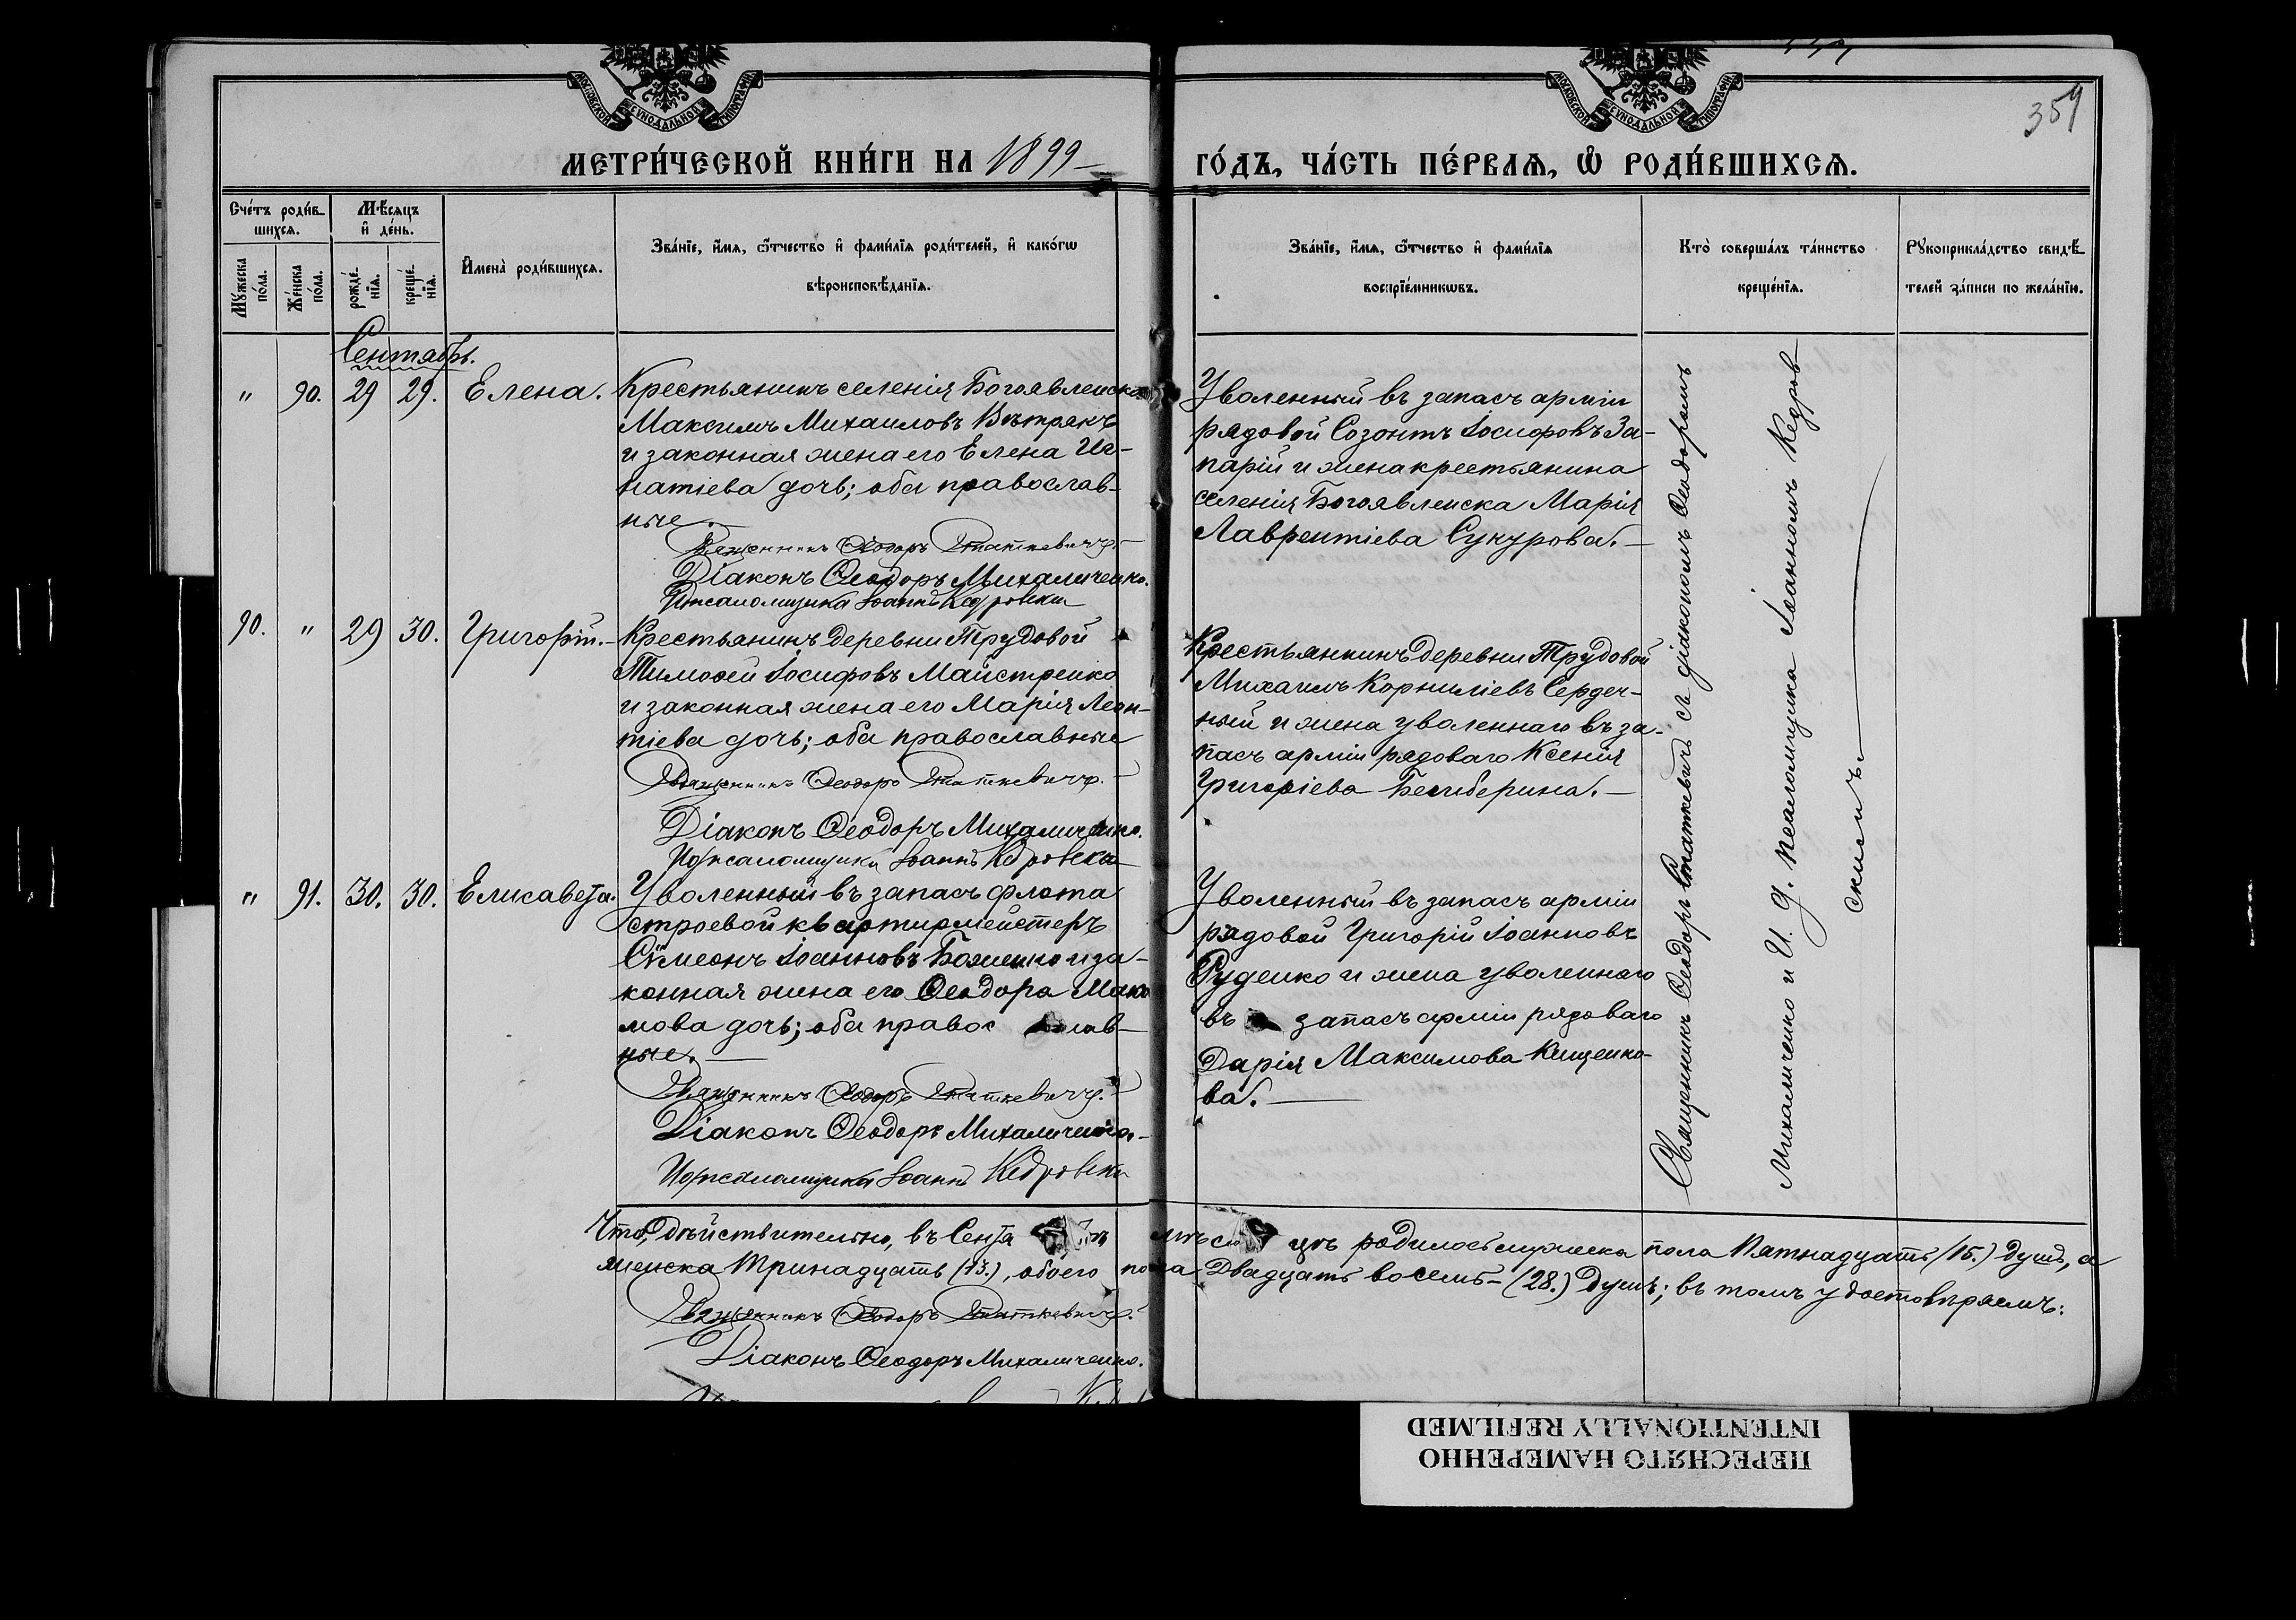 МОСКОВСКОЙ СѴНОДАЛЬНОЙ ТИПОГРАФІИ
МОСКОВСКОЙ СѴНОДАЛЬНОЙ ТИПОГРАФІИ
359
МЕТРИ́ЧЕСКОЙ КНИ́ГИ НА 1899
ГО́ДЪ, ЧА́СТЬ ПЕ́РВАЯ, Ѡ РОДИ́ВШИХСЯ.
Сче́тъ роди́в-
шихся.
Мѣ́сяцъ
и де́нь.
Му́жеска
по́ла.
Же́нска
по́ла.
рожде́-
нїя.
креще́-
нїя.
Имена̀ роди́вшихся.
Зва́нїе, и́мя, ѻ҆́тчество и фами́лїя роди́телей, и како́гѡ
вѣроисповѣ́данїя.
Зва́нїе, и́мя, ѻ҆́тчество и фами́лїя
воспрїе́мникѡвъ.
Кто̀ соверша́лъ та́инство
креще́нїя.
Рꙋкоприкла́дство свидѣ́-
телей за́писи по жела́нїю.
Сентябрь.
" 90. 29 29. Елена.
Крестьянинъ селенія Богоявленска
Максимъ Михаиловъ Вѣтрякъ
и законная жена его Елена Иг-
натіева дочь; оба православ-
ные.
Священникъ Ѳеодоръ Статкевичъ.
Діаконъ Ѳеодоръ Михаличенко.
Псаломщика Іоаннъ Кедровскій
Уволенный въ запасъ арміи
рядовой Созонтъ Іосифовъ За-
парій и жена крестьянина
селенія Богоявленска Марія
Лаврентіева Сукурова.
90. " 29 30. Григорій.
Крестьянинъ деревни Трудовой
Тимоѳей Іосифовъ Майстренко
и законная жена его Марія Леон-
тіева дочь; оба православные
Священникъ Ѳеодоръ Статкевичъ.
Діаконъ Ѳеодоръ Михаличенко.
Псаломщика Іоаннъ Кедровскій
Крестьянинъ деревни Трудовой
Михаилъ Корниліевъ Сердеч-
ный и жена уволеннаго въ за-
пасъ арміи рядоваго Ксенія
Григоріева
" 91. 30. 30. Елисавета.
Уволенный въ запасъ флота
строевой квартирмейстеръ
Сѵмеонъ Іоанновъ Боженко и за-
конная жена его Ѳеодора Мако
мова дочь; оба правос лав-
ные.
Священникъ Ѳеодоръ Статкевичъ.
Діаконъ Ѳеодоръ Михаличенко.
Псаломщика Іоаннъ Кедровскій
Уволенный въ запасъ арміи
рядовой Григорій Іоанновъ
Руденко и жена уволеннаго
въ запасъ арміи рядоваго
Дарія Максимова Кищенко-
ва.
Священникъ Ѳеодоръ Статкевичъ съ діакономъ Ѳеодоромъ
Михаличенко и И. д. псаломщика Іоанномъ Кедров-
скимъ.
Что дѣйствительно, въ Сентя мѣся цѣ родилось мужеска пола Пятнадцать (15.) душъ, а
женска Тринадцать (13.), обоего пола Двадцать восемь (28.) Душъ; въ томъ удостовѣряемъ:
Священникъ Ѳеодоръ Статкевичъ.
Діаконъ Ѳеодоръ Михаличенко.
ПЕРЕСНЯТО НАМЕРЕННО
INTENTIONALLY REFILMED